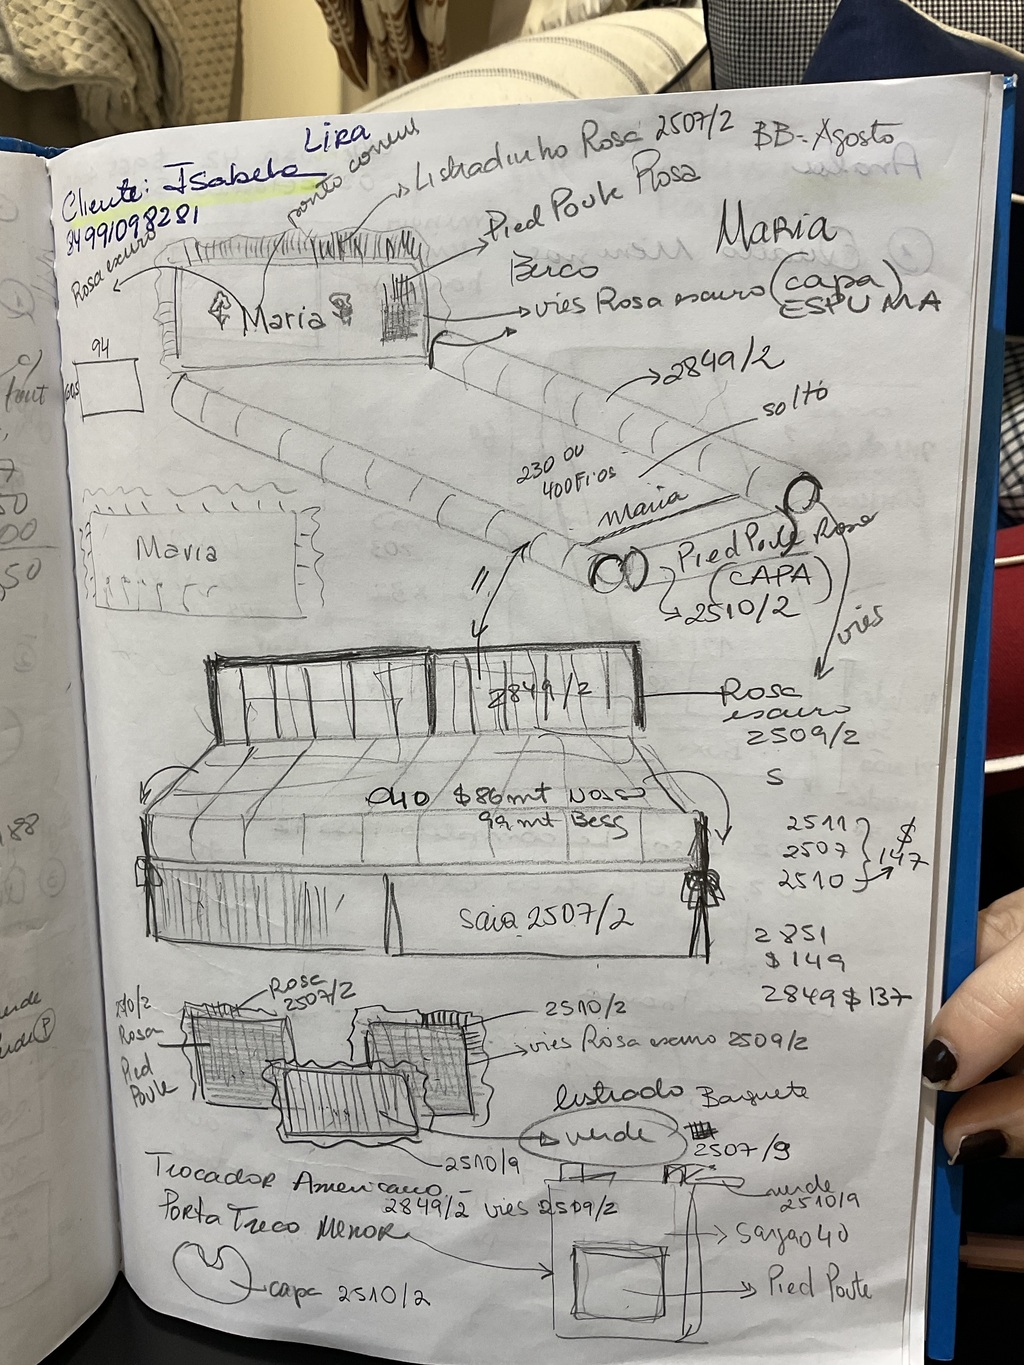 Lira
Cliente: Isabela
34991098281
ponto comus
Listradinho Rosa 2507/2
BB-Agosto
Pied Poule Rosa
Maria
Berco
Rosa escuro
vies Rosa escuro (capa)
ESPUMA
Maria
94
60s
2849/2
solto
230 ou
400Fios
Maria
Maria
Pied Poule Rosa
(CAPA)
2510/2
11
vies
2849/2
Rosa
escuro
2509/2
S
040 $86mt Nosso
99 mt Bess
2511
2507
2510
$
147
Saia 2507/2
2851
$149
2849 $137
2510/2
Rosa
Pied
Poule
Rosa
2507/2
2510/2
vies Rosa escuro 2509/2
listrado Baguete
verde
2507/9
2510/9
Trocador Americano -
2849/2 vies 2509/2
verde
2510/9
Porta Treco Menor
Sarja040
Pied Poule
capa 2510/2